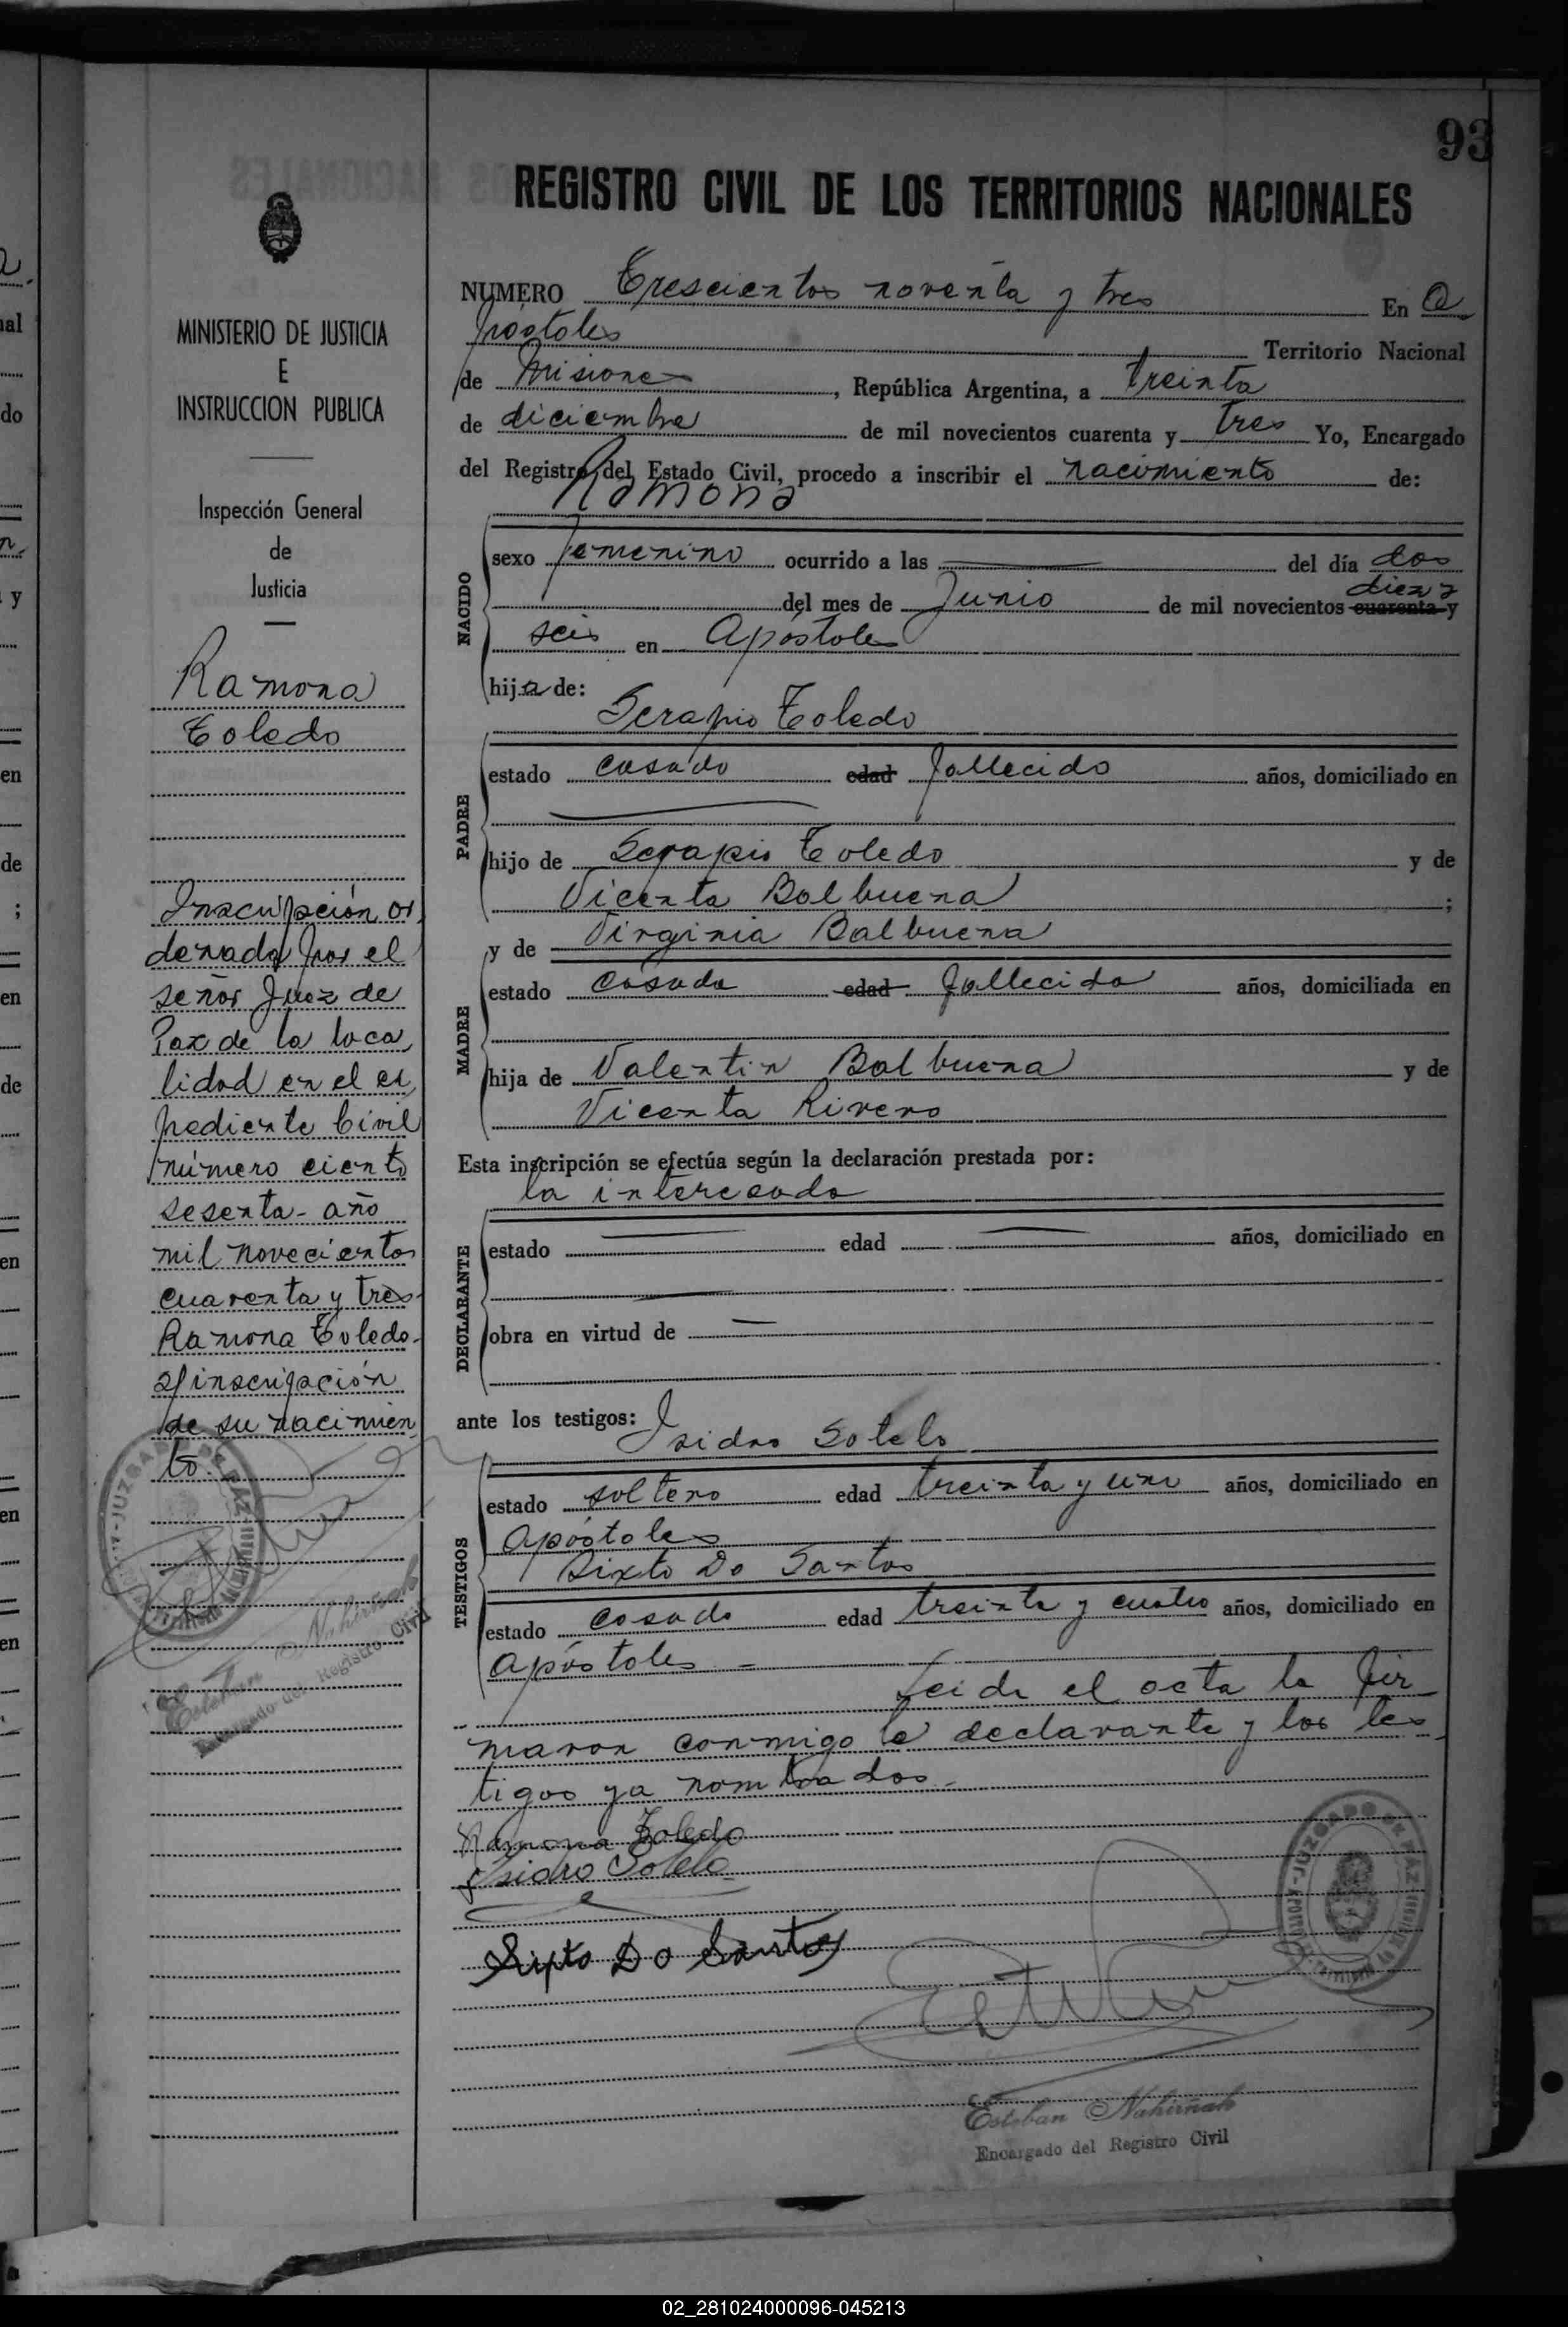 93
REGISTRO CIVIL DE LOS TERRITORIOS NACIONALES
MINISTERIO DE JUSTICIA
E
INSTRUCCION PUBLICA
Inspección General
de
Justicia
Ramona
Toledo
Inscripción or
denada por el
señor Juez de
Paz de la loca
lidad en el ex
pediente Civil
número ciento
sesenta - año
mil novecientos
cuarenta y tres-
Ramona Toledo-
s/inscripción
de su nacimien
to.
Esteban Nahirñak
Encargado del Registro Civil
NUMERO Trescientos noventa y tres En A
póstoles Territorio Nacional
de Misiones, República Argentina, a treinta
de diciembre de mil novecientos cuarenta y tres Yo, Encargado
del Registro del Estado Civil, procedo a inscribir el nacimiento de:
Ramona
NACIDO
sexo femenino ocurrido a las del día dos
del mes de Junio de mil novecientos cuarenta y diez y
seis en Apóstoles
hija de:
Serapio Toledo
PADRE
estado casado edad fallecido años, domiciliado en
hijo de Serapio Toledo y de
Vicenta Balbuena ;
y de Virginia Balbuena
MADRE
estado casada edad fallecida años, domiciliada en
hija de Valentin Balbuena y de
Vicenta Rivero
Esta inscripción se efectúa según la declaración prestada por:
la interesada
DECLARANTE
estado edad años, domiciliado en
obra en virtud de
ante los testigos: Isidro Sotelo
TESTIGOS
estado soltero edad treinta y uno años, domiciliado en
Apóstoles
Sixto Do Santos
estado casado edad treinta y cuatro años, domiciliado en
Apóstoles -
Leida el acta la fir
maron conmigo la declarante y los tes
tigos ya nombrados.-
Ramona Toledo
Isidro Sotelo
Sixto Do Santos
Esteban Nahirñak
Encargado del Registro Civil
02_281024000096-045213